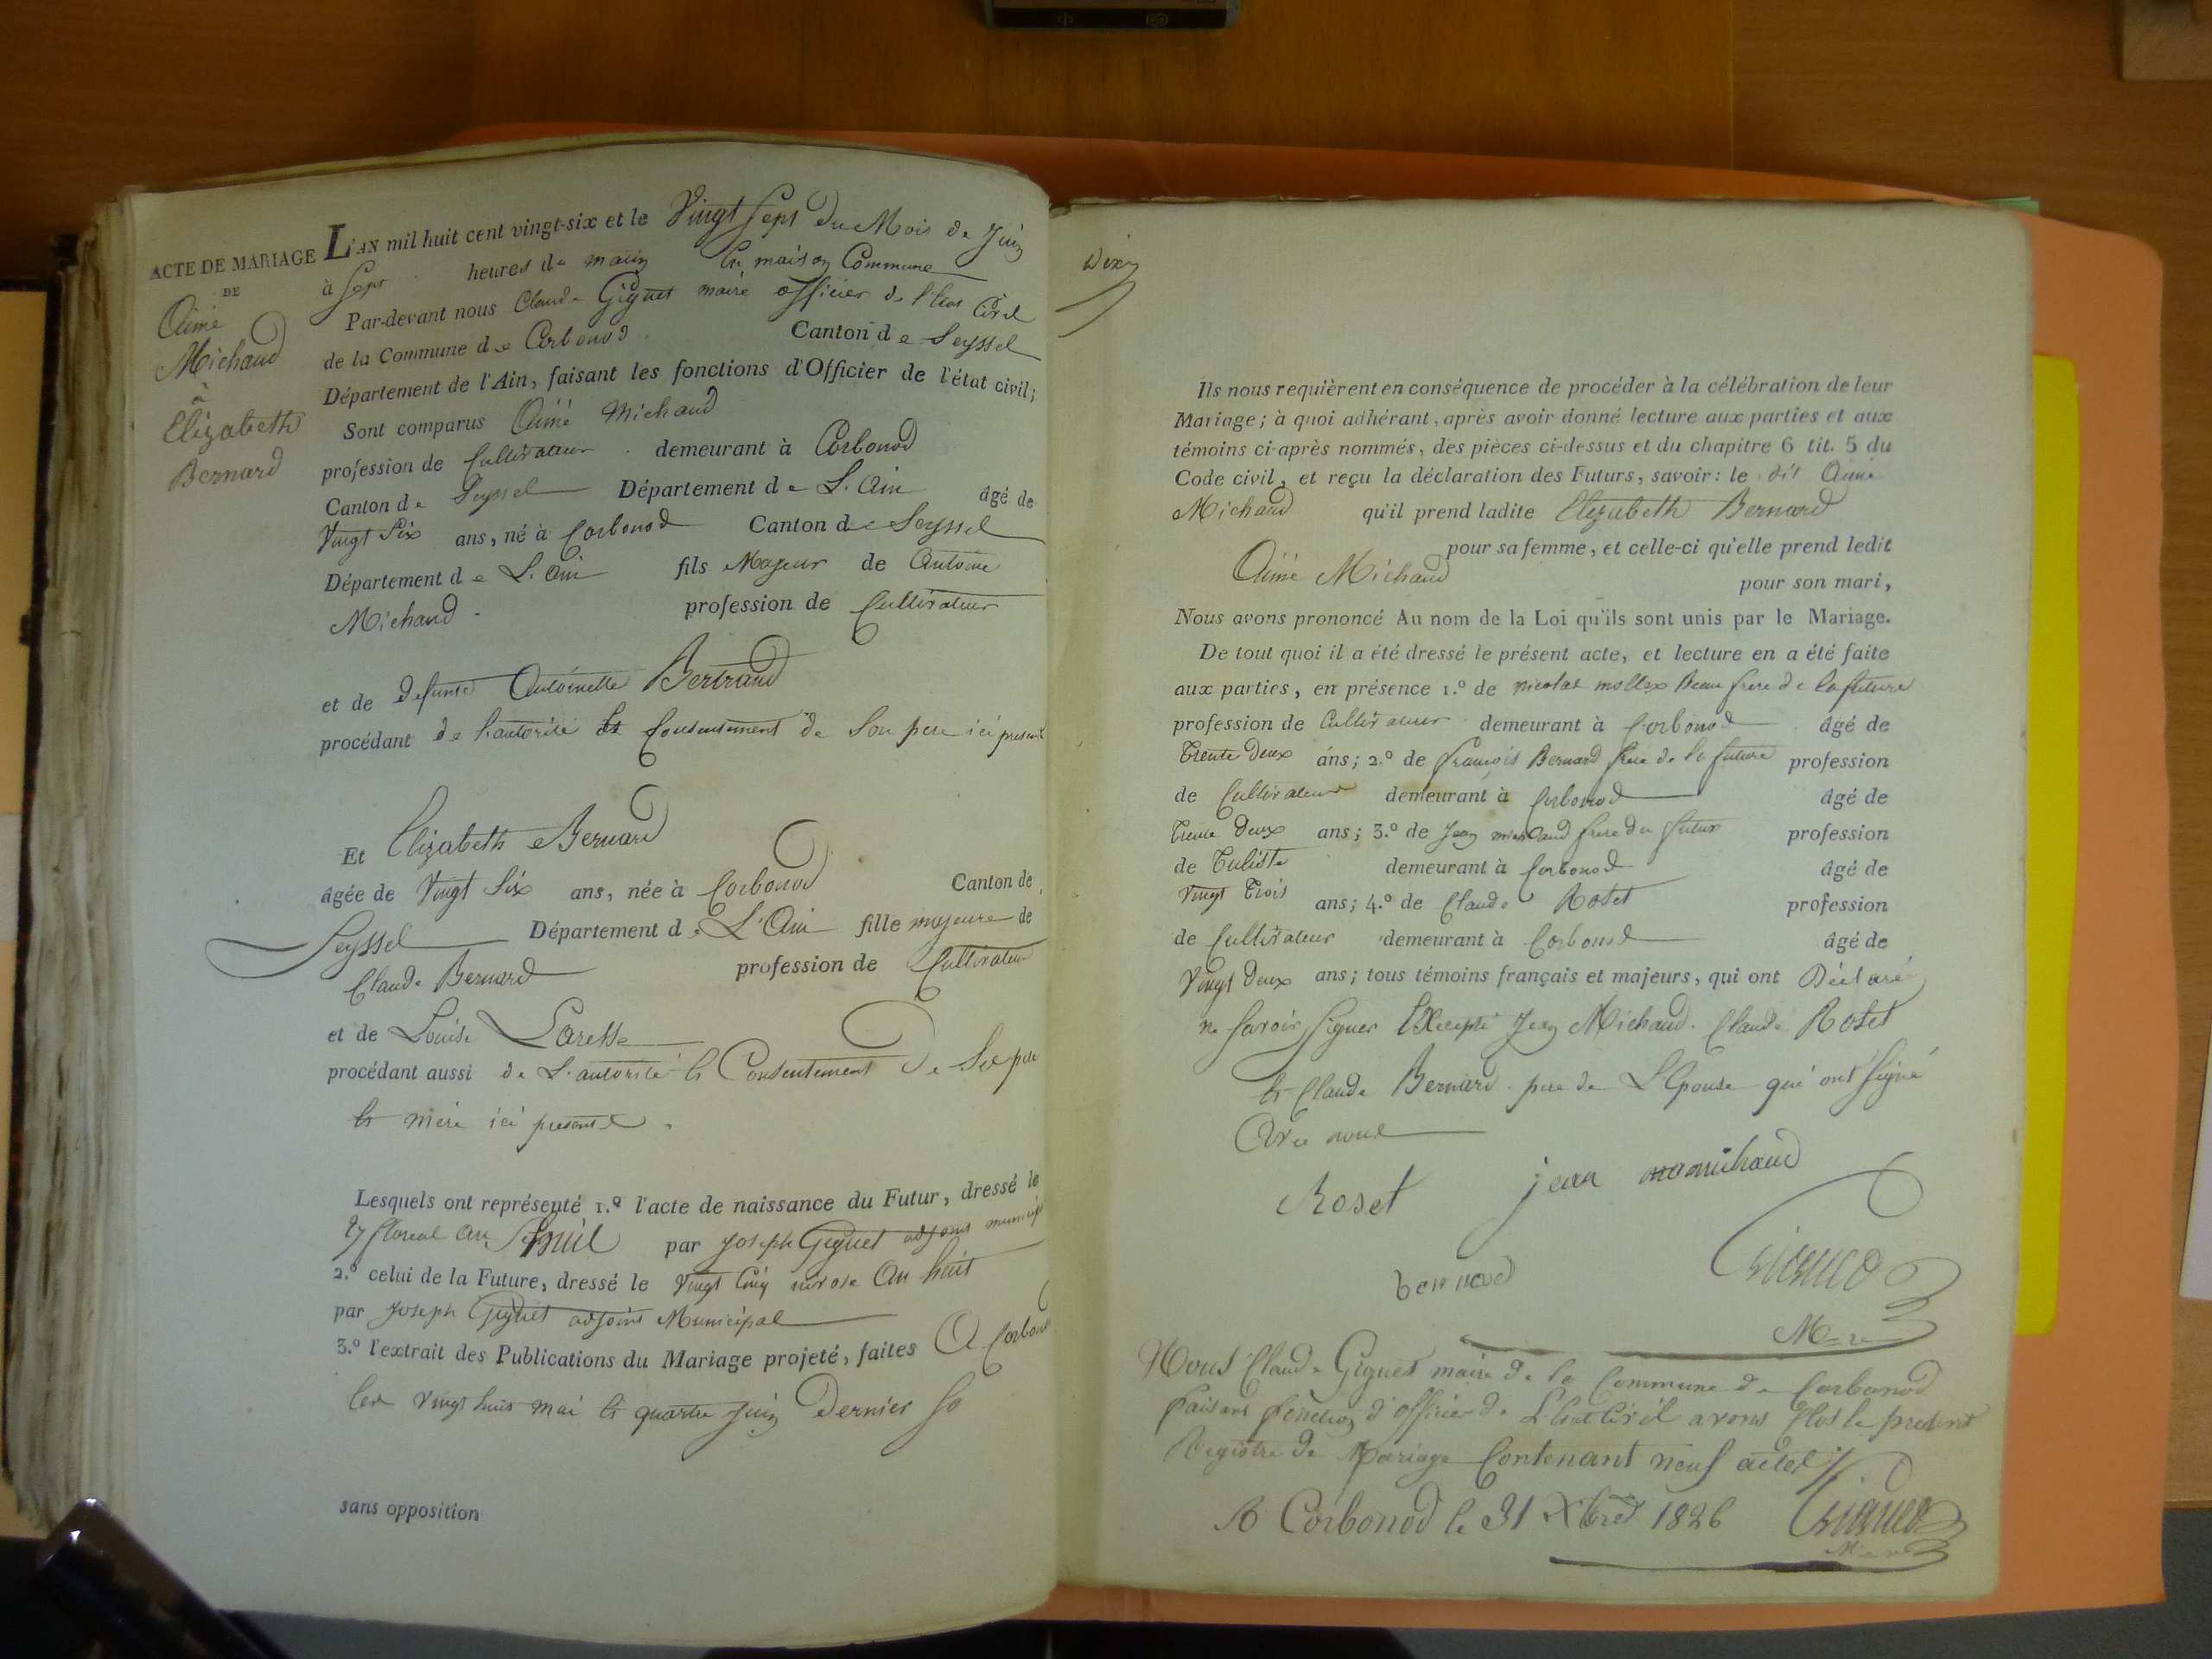 ACTE DE MARIAGE
DE
Aimé
Michaud
à
Elizabeth
Bernard
L'AN mil huit cent vingt-six et le Vingt Sept du Mois de Juin
à Sept heures du matin En maison Commune
Par-devant nous Claude Giguet maire officier de l'Etat Civil
de la Commune de Corbonod Canton de Seyssel
Département de l'Ain, faisant les fonctions d'Officier de l'état civil;
Sont comparus Aimé Michaud
profession de Cultivateur demeurant à Corbonod
Canton de Seyssel Département de L'Ain âgé de
Vingt Six ans, né à Corbonod Canton de Seyssel
Département de L'Ain fils Majeur de Antoine
Michaud profession de Cultivateur
et de Defunte Antoinette Bertrand
procédant de l'autorité et Consentement de Son pere ici present
Et Elizabeth Bernard
âgée de Vingt Six ans, née à Corbonod Canton de
Seyssel Département de L'Ain fille majeure de
Claude Bernard profession de Cultivateur
et de Louise
procédant aussi de L'autorité et Consentement De Ses pere
et mère ici present
Lesquels ont représenté 1.º l'acte de naissance du Futur, dressé le
27 floreal an huit par Joseph Giguet adjoint municipal
2.º celui de la Future, dressé le Vingt Cinq nivose An huit
par Joseph Giguet adjoint Municipal
3.º l'extrait des Publications du Mariage projeté, faites A Corbonod
Les Vingt huit mai et quatre Juin Dernier
sans opposition
Ils nous requièrent en conséquence de procéder à la célébration de leur
Mariage; à quoi adhérant, après avoir donné lecture aux parties et aux
témoins ci-après nommés, des pièces ci-dessus et du chapitre 6 tit. 5 du
Code civil, et reçu la déclaration des Futurs, savoir: le dit Aimé
Michaud qu'il prend ladite Elizabeth Bernard
pour sa femme, et celle-ci qu'elle prend ledit
Aimé Michaud pour son mari,
Nous avons prononcé Au nom de la Loi qu'ils sont unis par le Mariage.
De tout quoi il a été dressé le présent acte, et lecture en a été faite
aux parties, en présence 1.º de nicolas mollex Beau frere de la future
profession de Cultivateur demeurant à Corbonod âgé de
Trente Deux ans; 2.º de François Bernard frere de la future profession
de Cultivateur demeurant à Corbonod âgé de
Trente Deux ans; 3.º de Jean michaud frere du futur profession
de Tuliste demeurant à Corbonod âgé de
Vingt Trois ans; 4.º de Claude Roset profession
de Cultivateur demeurant à Corbonod âgé de
Vingt Deux ans; tous témoins français et majeurs, qui ont Déclaré
ne Savoir Signer Excepté Jean Michaud. Claude Roset
et Claude Bernard pere de L'Epouse qui ont Signé
Avec nous
Roset jean michaud
bernard Giguet
Mre
Nous Claude Giguet maire de la Commune de Corbonod
faisant fonction d'officier de L'Etat Civil avons Clos le present
Registre de Mariage Contenant neuf actes
A Corbonod le 31 Xbre 1826 Giguet